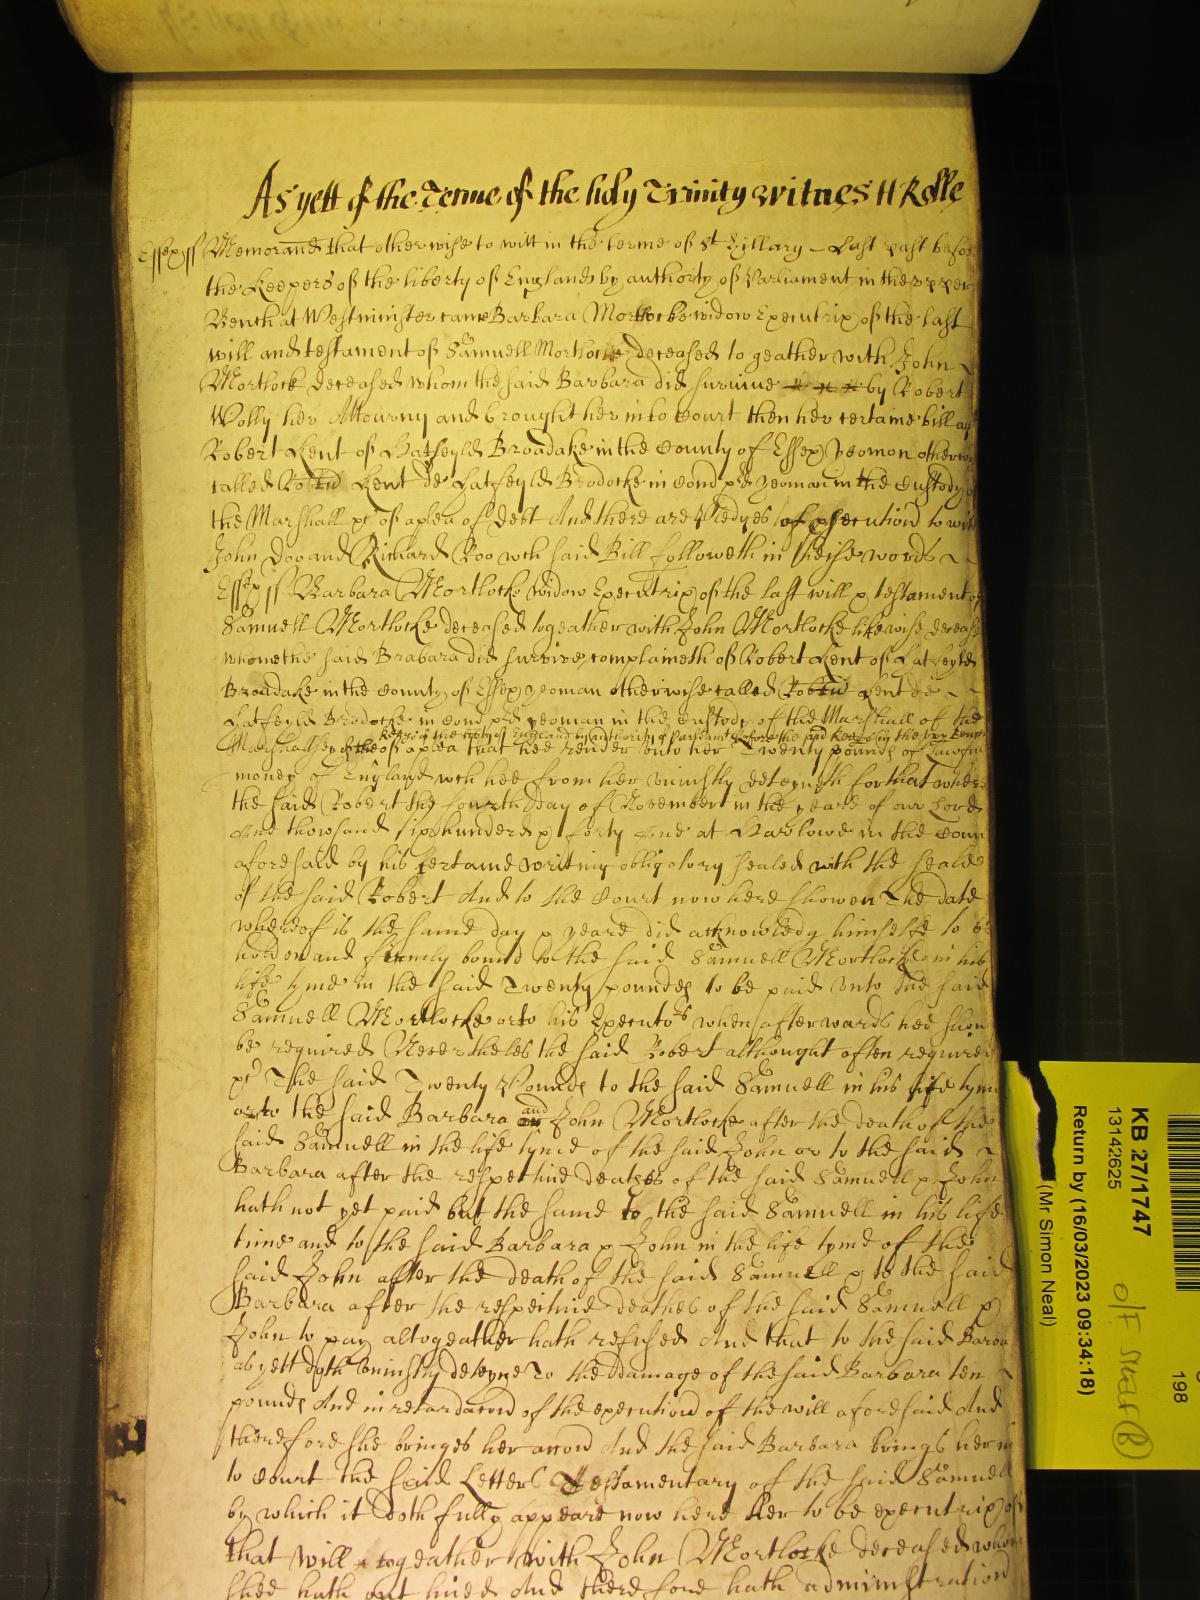 As yett of the Terme of the holy Trinity witnes H Rolle
Essex ss Memorand that otherwise to witt in the terme of St Hillary Last past before
the Keepers of the liberty of England by authorty of Parliament in the upper
Bench at Westminister came Barbara Mortlocke widow Executrix of the last
will and testament of Samuell Mortlocke deceased to geather with John
Mortlock deceased whom the said Barbara did survive by Robert
Wolly her Attourny and brought her into Court then her certaine bill ag
Robert Kent of Hatfeyld Broadake in the County of Essex yeomon otherw
called Robtu Kent de Hatfeyld Brodocke in Com pred yeoman in the Custody of
the Marshall &c of a plea of debt And there are Pledges of psecution to witt
John Doo and Richard Roo wch said Bill followeth in theise words
Essex ss Barbara Mortlocke widow Executrix of the last will & testament of
Samuell Mortlocke deceased togeather with John Mortlocke likewise decease
whome the said Brabara did survive complaineth of Robert Kent of Hatfeyld
Broadake in the County of Essex yeoman otherwise called Robtu Kent de
Hatfeyld Brodocke in Com pred yeoman in the Custody of the Marshall of the
Keeps of the liberty of England by authority of Parliamt before the said Keeps in the upp Bench
Marshallsey of the of a plea that hee render unto her Twenty pounds of Lawfull
money of England wch hee from her uniustly deteyneth for that where
the said Robert the fourth Day of November in the yeare of our Lord
One thowsand six hundered & forty One at Harlowe in the Coun
aforesaid by his certaine writing obligotory sealed with the seale
of the said Robert And to the Court now here showen The date
whereof is the same day & yeare did acknowledg himselfe to be
holden and firmly bound to the said Samuell Mortlocke in his
life tyme in the said Twenty poundes to be paid unto the said
Samuell Mortlocke or to his Executors when afterwards hee shou
be required Neverthelės the said Robert althought often required
&c The said Twenty Pounds to the said Samuell in his life tyme
or to the said Barbara and John Mortlocke after the death of the
said Samuell in the life tyme of the said John or to the said
Barbara after the respective deathes of the said Samuell & John
hath not yet paid but the same to the said Samuell in his life
time and to the said Barbara & John in the life tyme of the
said John after the death of the said Samuell & to the said
Barbara after the respective deathes of the said Samuell &
John to pay altogeather hath refused And that to the said Barba
as yett doth uniustly deteyne To the Damage of the said Barbara ten
pounds And in retardacon of the execution of the will aforesaid And
therefore she bringes her accon And the said Barbara brings here in
to Court the said Letters Testamentary of the said Samuell
by which it doth fully appeare now here Her to be executrix of
that will togeather with John Mortlocke deceased whom
shee hath out lived And therefore hath administration
KB 27/1747
13142625
Return by (16/03/2023 09:34:18)
(Mr Simon Neal)
198